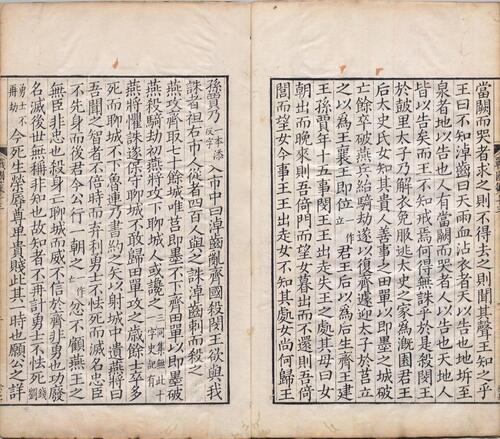 當闕而哭者求之則不得去之則聞其聲王知之乎
王曰不知淖齒曰天雨血沾衣者天以告也地坼至
泉者地以告也人有當闕而哭者人以告也天地人
皆以告矣而王不知戒焉何得無誅乎於是殺閔王
於鼓里太子乃解衣免服逃太史之家爲漑園君王
后太史氏女知其貴人善事之田單以即墨之城破
亡餘卒破燕兵紿騎劫遂以復齊遽迎太子於莒立
之以爲王襄王即位立作君王后以爲后生齊王建
王孫賈年十五事閔王王出走失王之處其母曰女
朝出而晚來則吾倚門而望女暮出而不還則吾倚
閭而望女今事王王出走女不知其處女尚何歸王
孫賈乃本添反字入市中曰淖齒亂齊國殺閔王欲與我
誅者袒右市人從者四百人與之誅淖齒刺而殺之
燕攻齊取七十餘城唯莒即墨不下齊田單以即墨破
燕殺騎劫初燕將攻下聊城人或讒之三同集無此十字史記有
燕將懼誅遂保守聊城不敢歸田單攻之歲餘士卒多
死而聊城不下魯連乃書約之矢以射城中遺燕將曰
吾聞之智者不倍時而弃利勇士不怯死而滅名忠臣
不先身而後君今公行一朝之作忿不顧燕王之
無臣非忠也殺身亡聊城而威不信於齊非勇也功廢
名滅後世無稱非知也故知者不再計勇士不怯死劉錢
勇士不再劫今死生榮辱尊卑貴賤此其一時也願公之詳